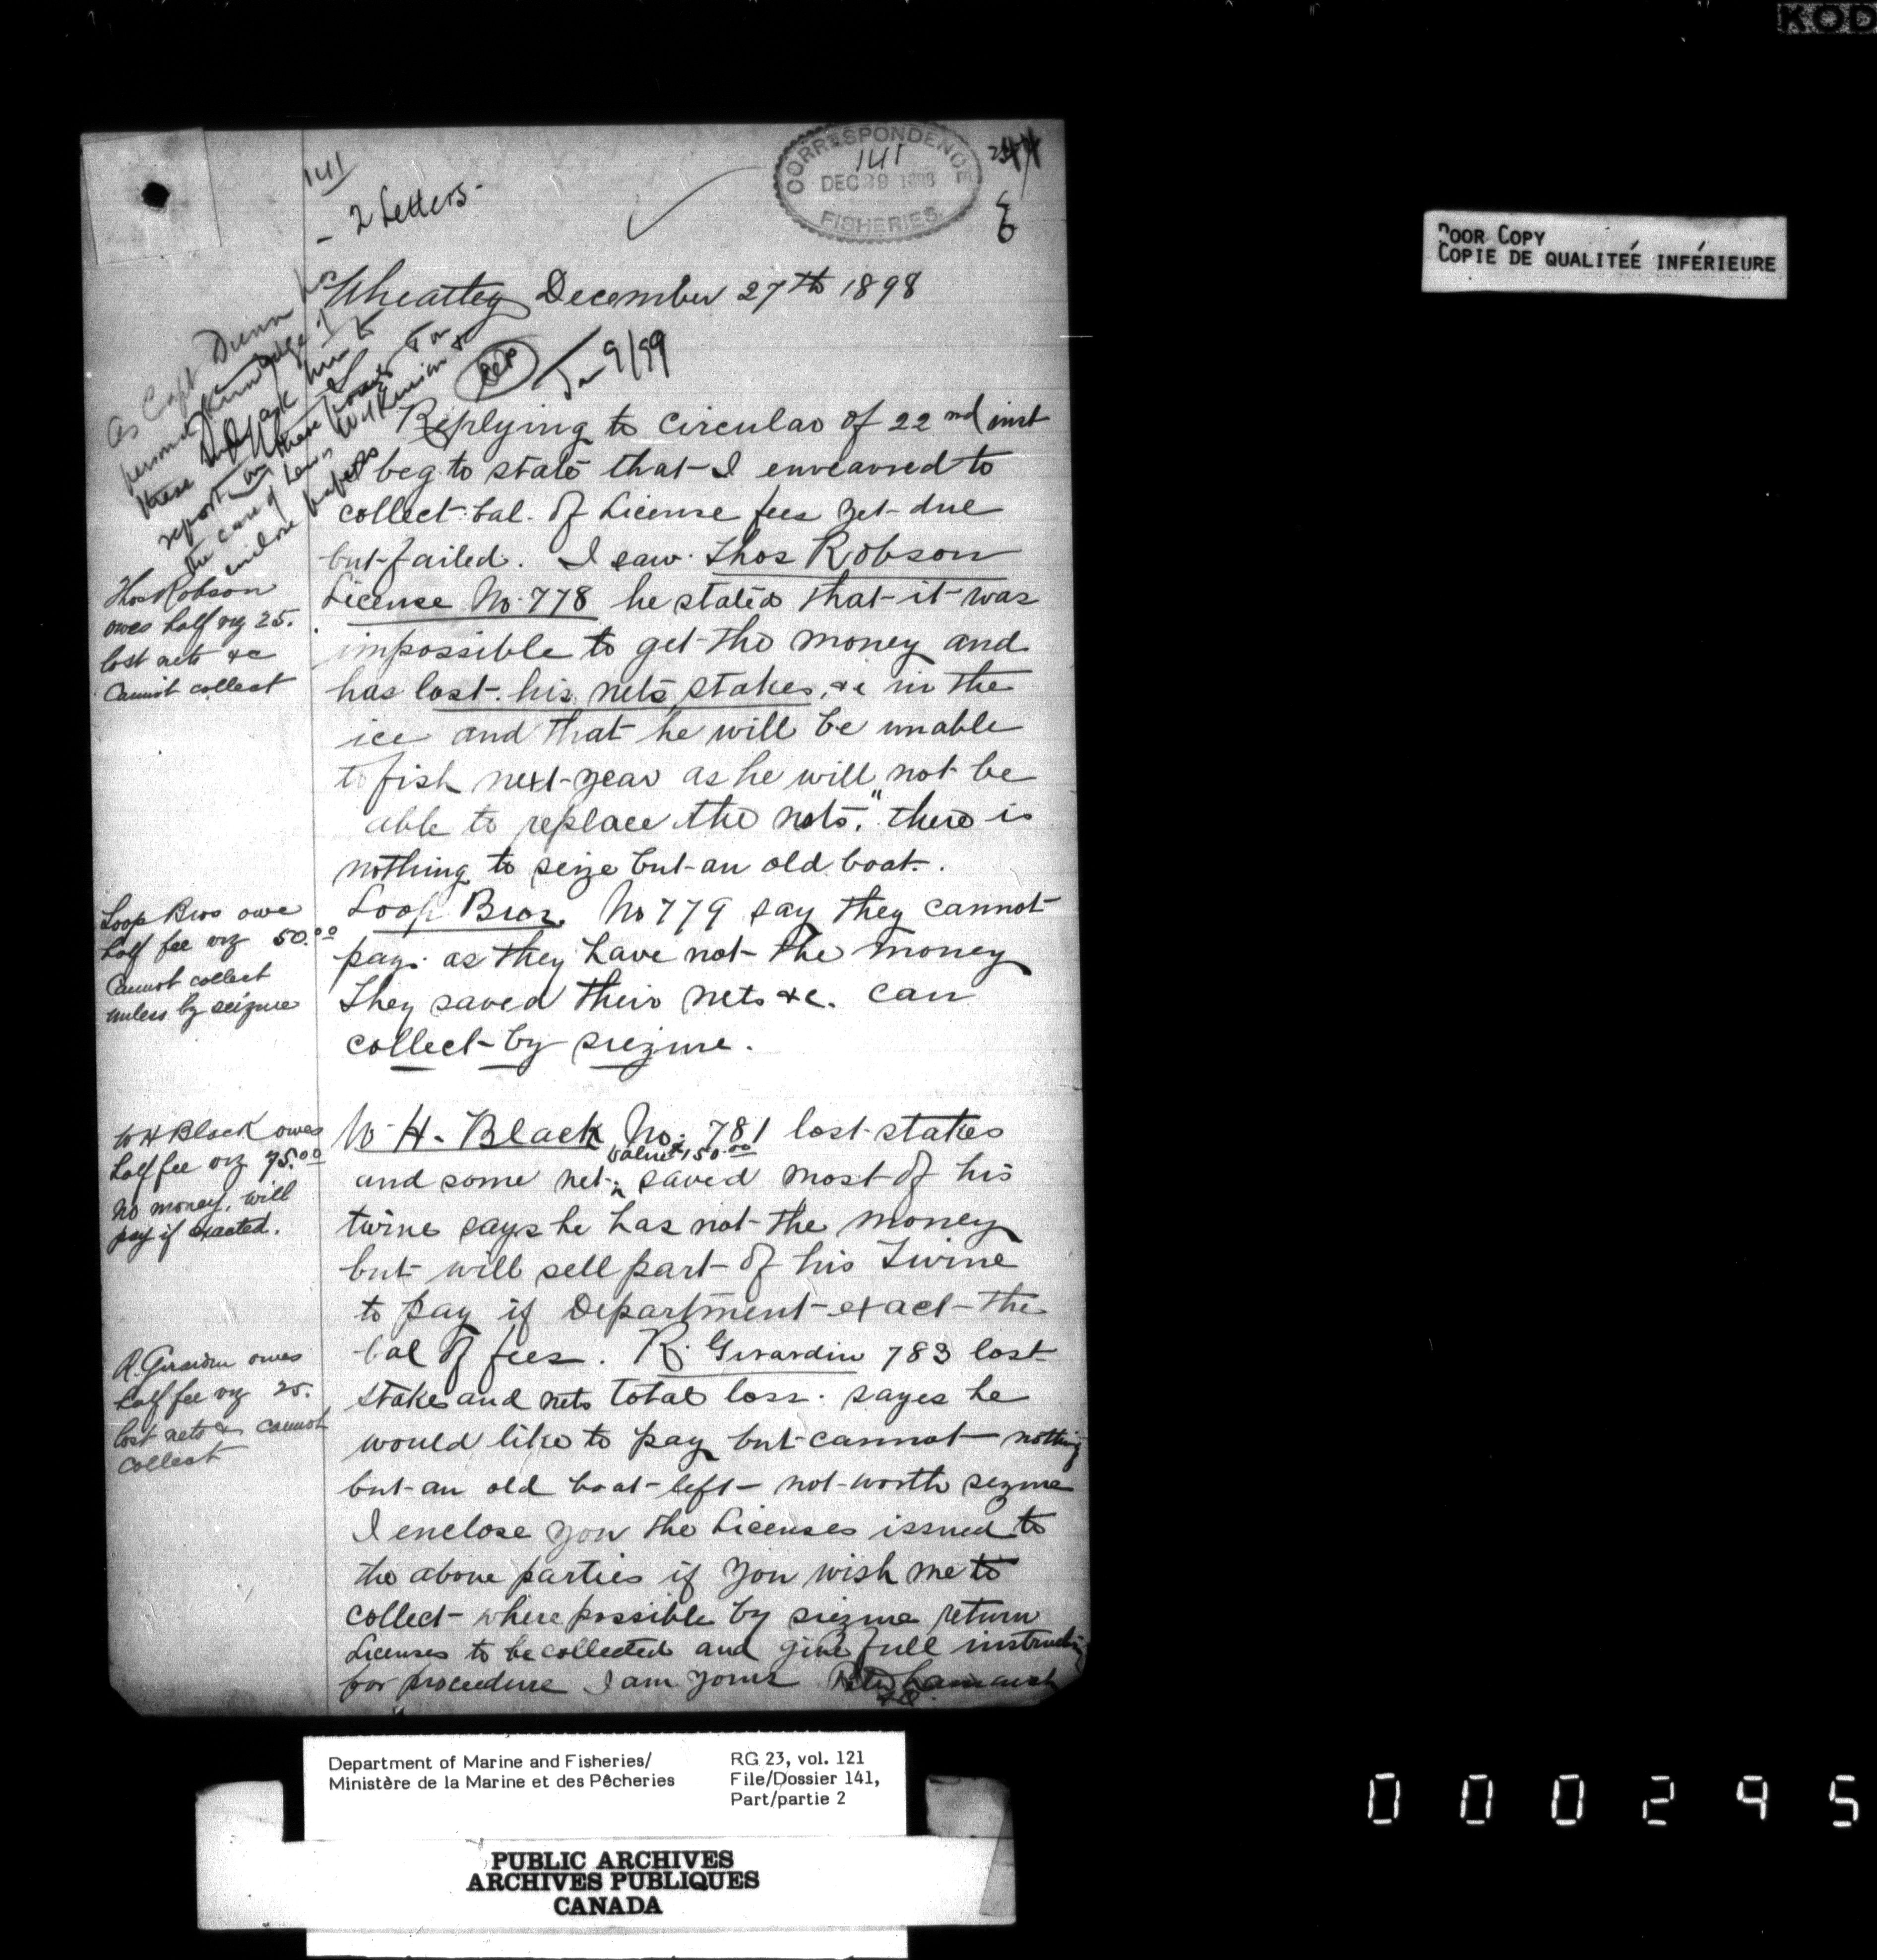 KOD
141
- 2 Letters -
CORRESPONDENCE
141
DEC 29 1898
FISHERIES
POOR COPY
COPIE DE QUALITEÉ INFÉRIEURE
Wheatley December 27th 1898
Jan 9/99
As Capt Dunn has
personal knowledge of
these ask him to
report on these cases & on
the case of Lewis Wilkinson &
enclose papers
Replying to circular of 22nd inst
I beg to state that I enveavred to
collect bal. of License fees yet due
but failed. I saw Thos Robson
License No. 778 he stated that it was
impossible to get the money and
has lost his nets, stakes, &c in the
ice and that he will be unable
to fish next year as he will not be
able to replace the nets," there is
nothing to seize but an old boat.
Thos Robson
owes half viz 25.
lost nets &c
Cannot collect
Loop Bros. No 779 say they cannot
pay as they have not the money
They saved their nets &c. can
collect by siezure.
Loop Bros owe
half fee viz 50.00
Cannot collect
unless by seizure
W. H. Black No. 781 lost stakes
value $150.00
and some net saved most of his
twine says he has not the money
but will sell part of his Twine
to pay if Department exact the
bal of fees. R. Girardin 783 lost
stakes and nets total loss. sayes he
would like to pay but cannot nothing
but an old boat left not worth sezure
I enclose you the Licenses issued to
the above parties if you wish me to
collect where possible by siezure return
Licenses to be collected and give full instructions
for procedure I am yours
W H Black owes
half fee viz 75.00
No money, will
pay if exacted.
R. Girardin owes
half fee viz 25.
lost nets & cannot
collect
Department of Marine and Fisheries/
Ministère de la Marine et des Pêcheries
RG 23, vol. 121
File/Dossier 141,
Part/partie 2
PUBLIC ARCHIVES
ARCHIVES PUBLIQUES
CANADA
000295